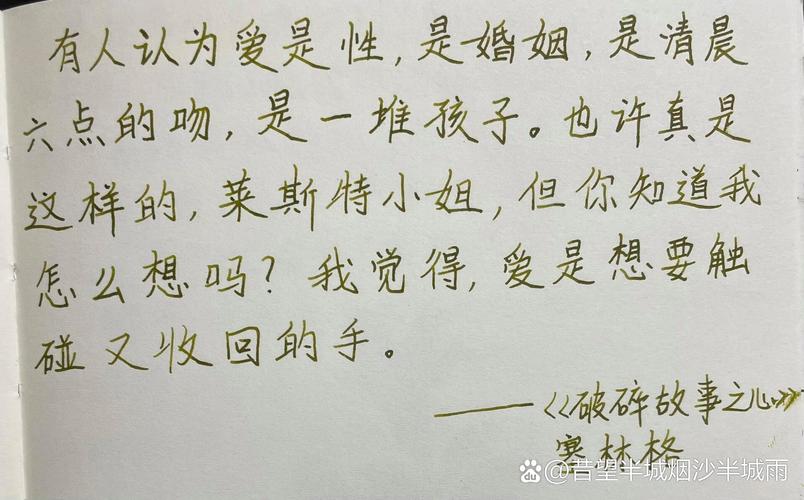 有人认为爱是性,是婚姻,是清晨
六点的吻,是一堆孩子。也许真是
这样的,莱斯特小姐,但你知道我
怎么想吗?我觉得,爱是想要触
碰又收回的手。
——《破碎故事之心》
塞林格
昔望半城烟沙半城雨